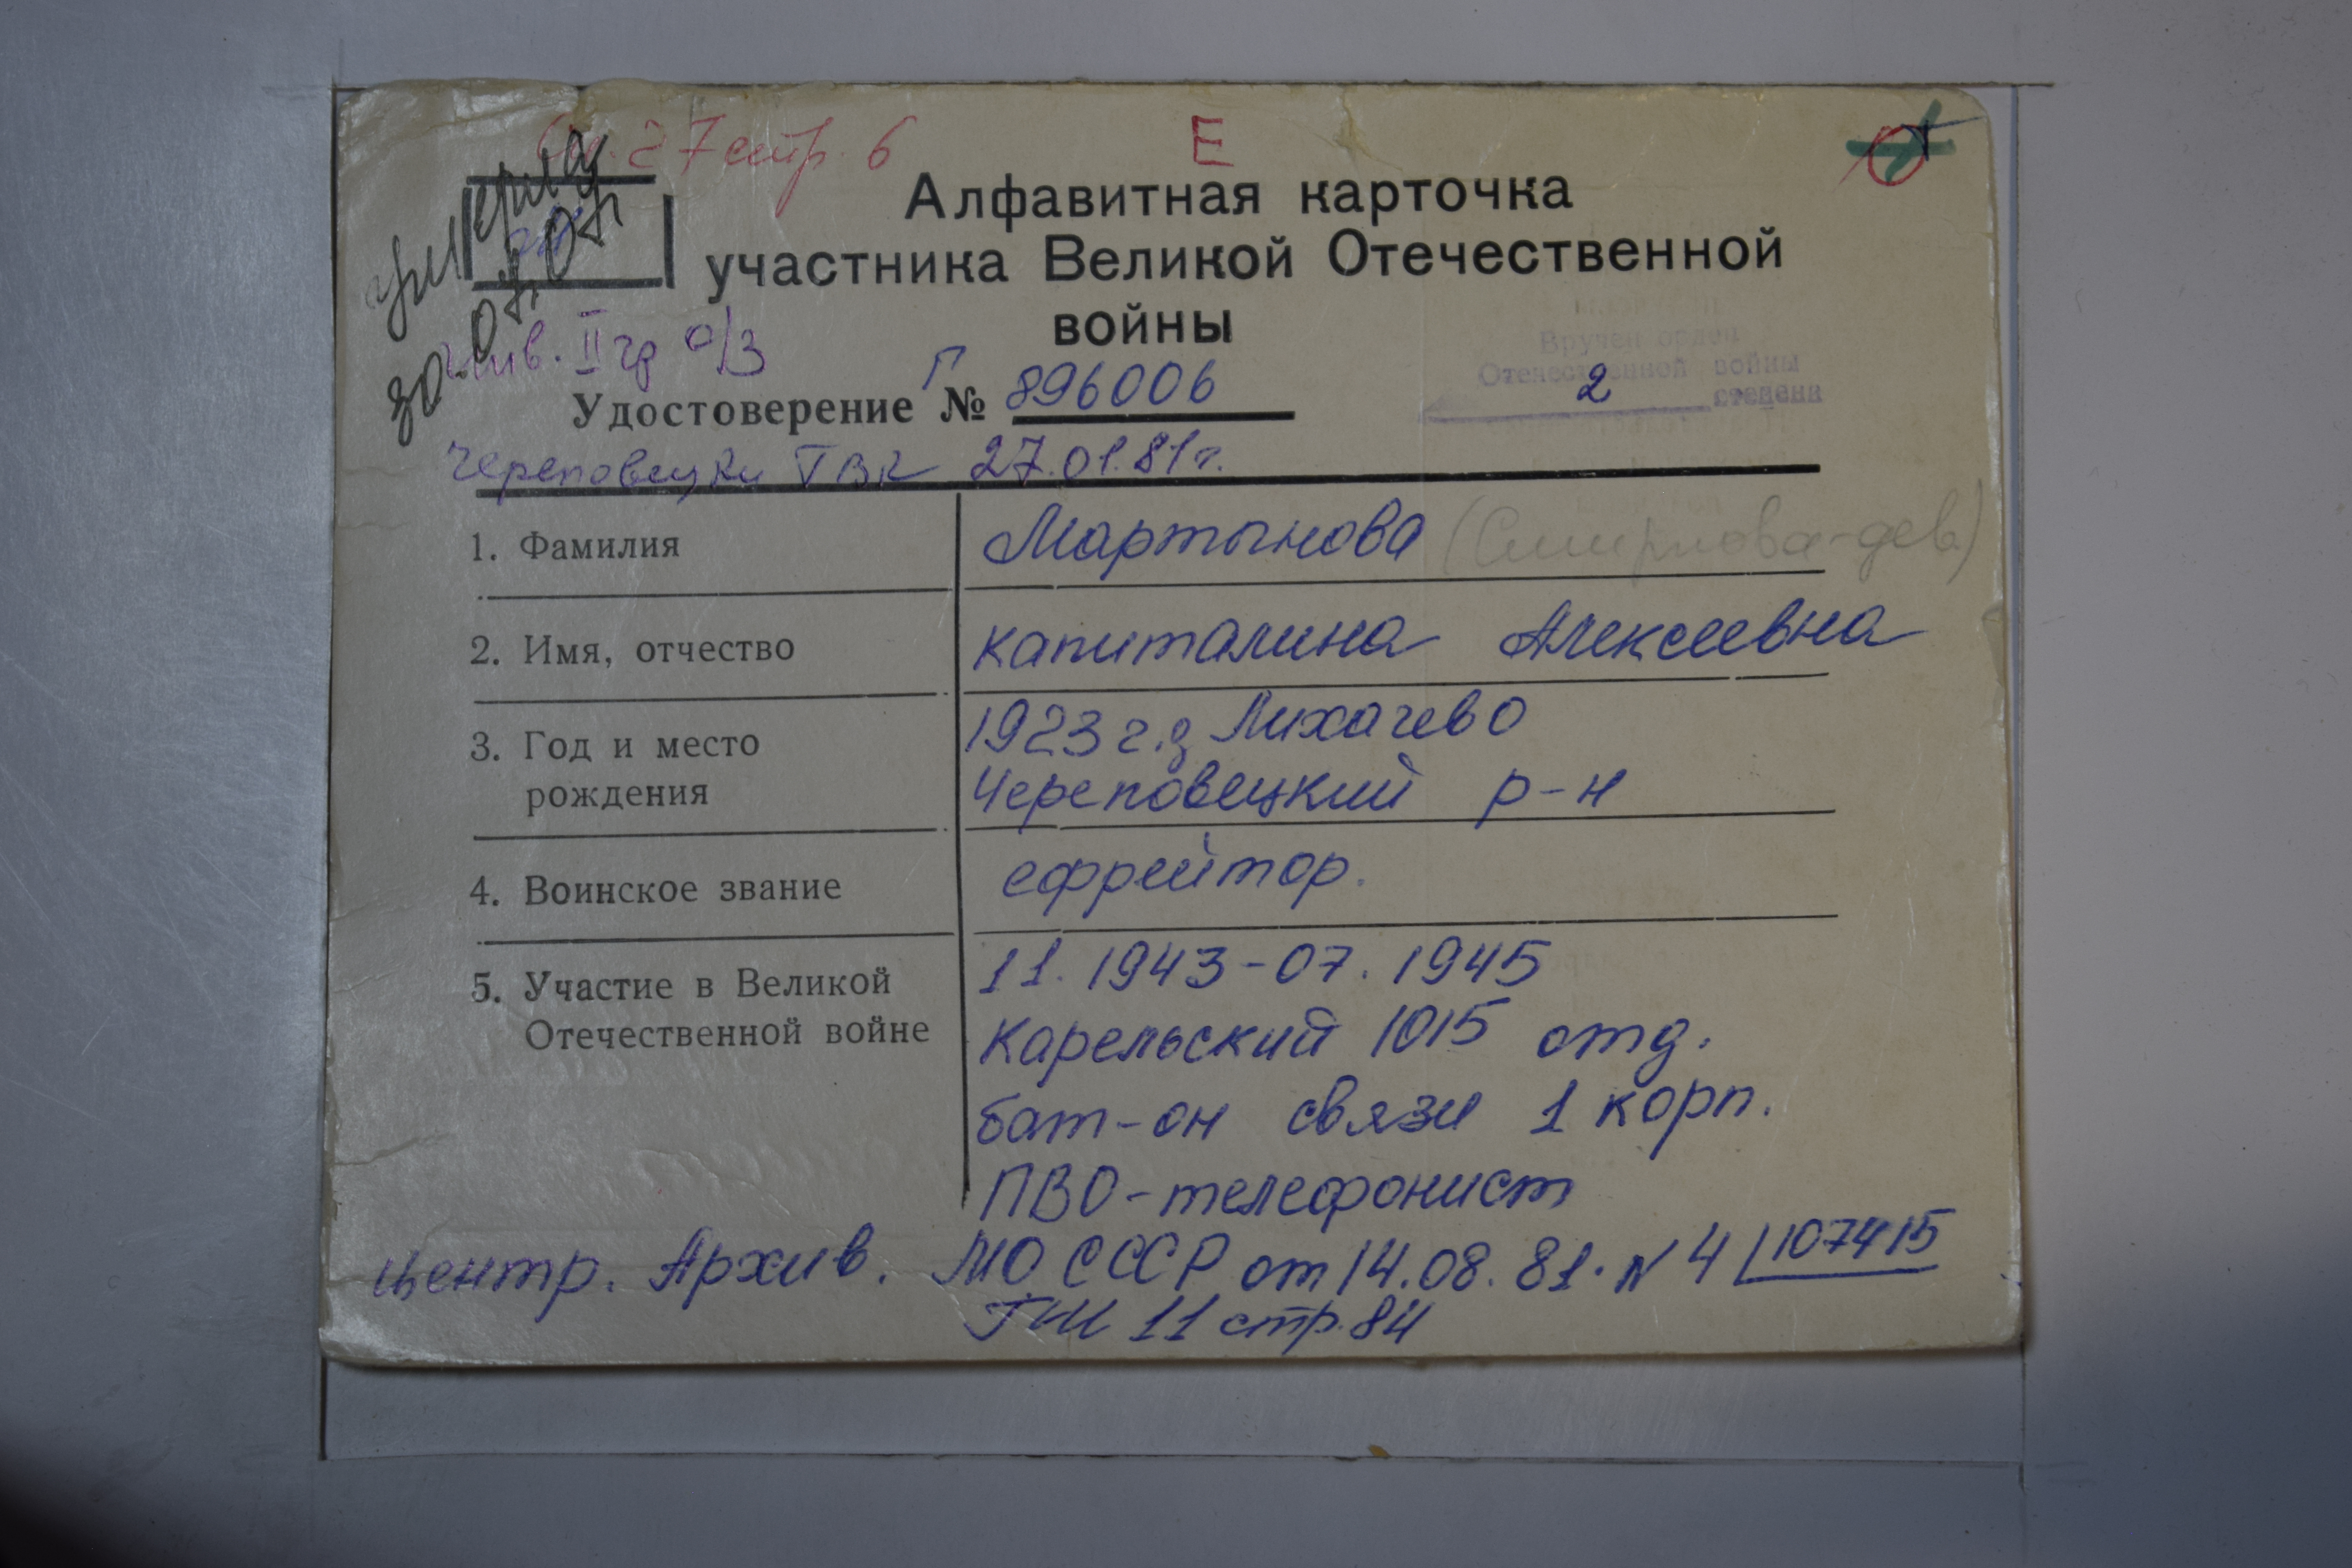 27 стр. 6
Е
Алфавитная карточка
участника Великой Отечественной
войны
умерла
30.07.07г
инв. II гр о/з
Вручен орден
Отечественной войны
2 степени
Удостоверение Г № 896006
Череповецкий ГВК 27.01.81г.
1. Фамилия Мартынова (Смирнова-дев)
2. Имя, отчество Капиталина Алексеевна
3. Год и место 1923 г.д Лихачево
рождения Череповецкий р-н
4. Воинское звание ефрейтор.
5. Участие в Великой 11. 1943-07. 1945
Отечественной войне Карельский 1015 отд.
бат-он связи 1 корп.
ПВО-телефонист
центр. Архив. МО СССР от 14.08.81. N 4/107415
11 стр. 84